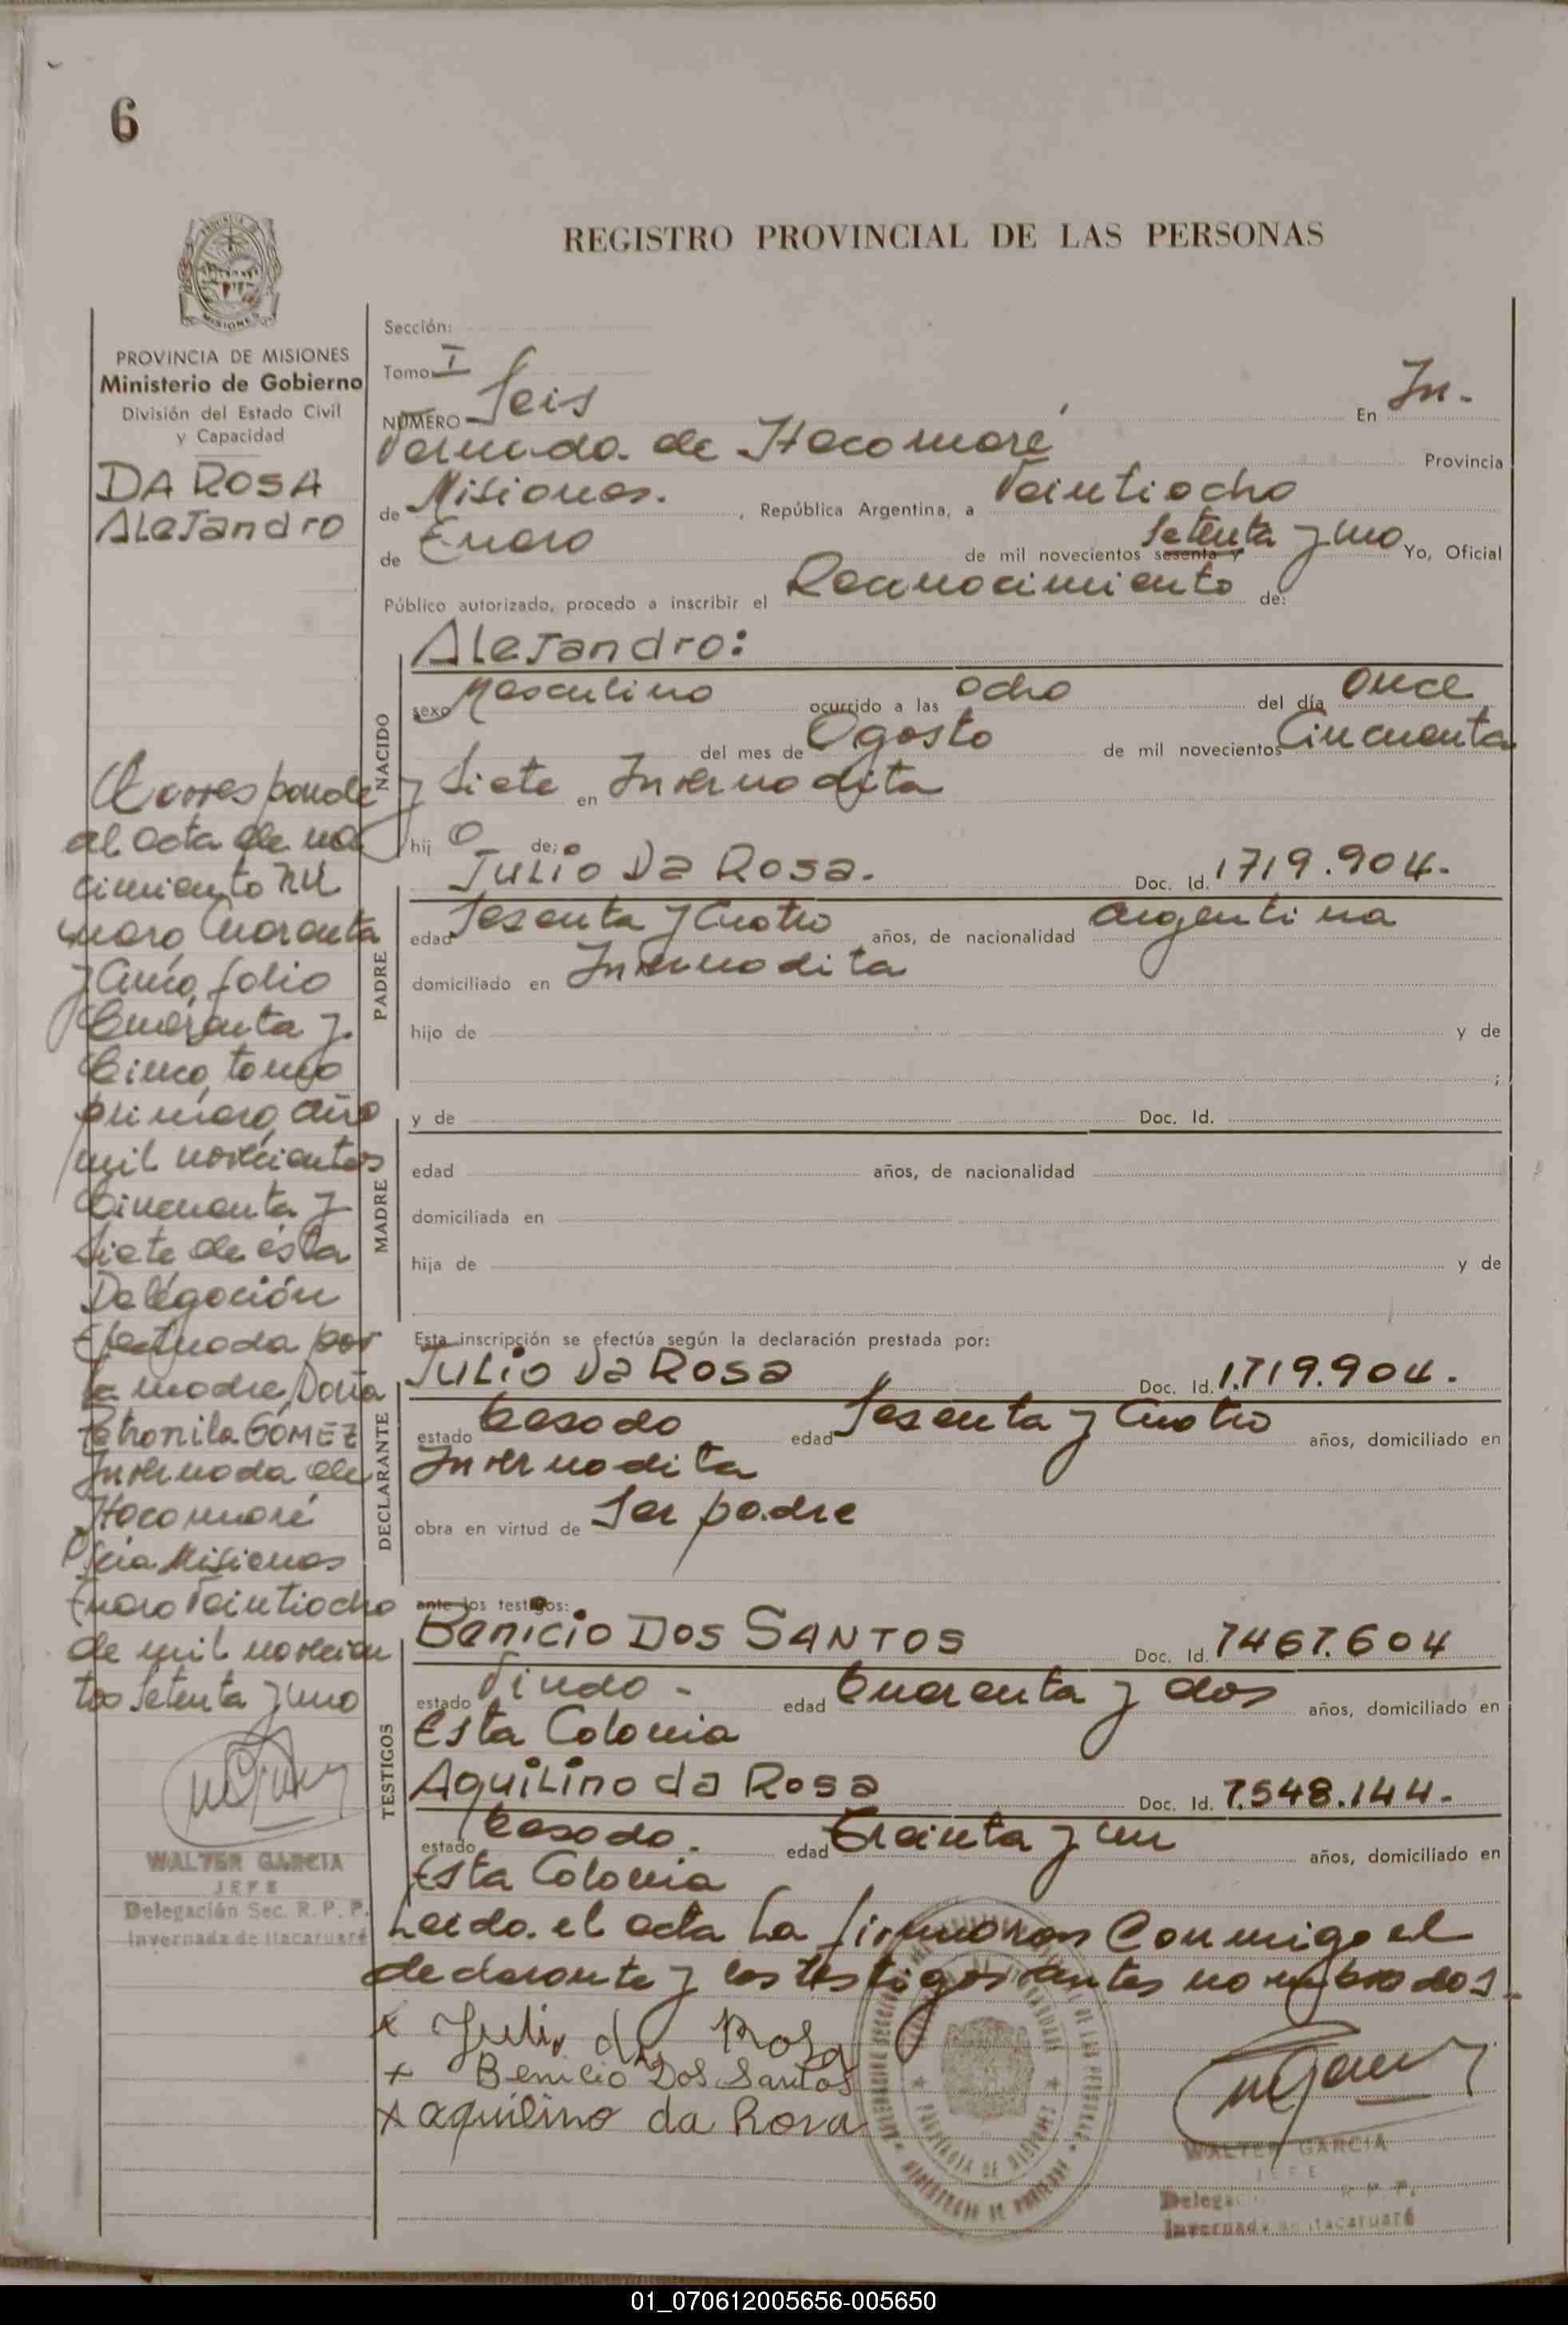 6
REGISTRO PROVINCIAL DE LAS PERSONAS
MISIONES
PROVINCIA DE MISIONES
Ministerio de Gobierno
División del Estado Civil
y Capacidad
DA ROSA
ALeJandro
Corresponde
al acta de na
cimiento Nú
mero, Cuarenta
y Cinco, folio
Cuarenta y
Cinco, tomo
primero, año
mil novecientos
Cincuenta y
Siete de ésta
Delegación
Efectuada por
la madre, Doña
Petronila GÓMEZ
Invernada de
Itacaruaré
Pcia Misiones
Enero Veintiocho
de mil novecien
tos Setenta y uno
WALTER GARCIA
JEFE
Delegación Sec. R. P. P.
Invernada de Itacaruaré
Sección:
Tomo I
NÚMERO Seis En In-
vernada de Itacaruaré Provincia
de Misiones. , República Argentina, a Veintiocho
de Enero de mil novecientos sesenta y Setenta y uno Yo, Oficial
Público autorizado, procedo a inscribir el Reconocimiento de:
NACIDO
ALeJandro:
sexo Masculino ocurrido a las ocho del día Once
del mes de Agosto de mil novecientos Cincuenta
y Siete en Invernadita
hij o de:
PADRE
JULIO Da Rosa. Doc. Id. 1719.904.
edad Sesenta y Cuatro años, de nacionalidad argentina
domiciliado en Invernadita
hijo de y de
;
MADRE
y de Doc. Id.
edad años, de nacionalidad
domiciliada en
hija de y de
Esta inscripción se efectúa según la declaración prestada por:
DECLARANTE
JULIO Da Rosa Doc. Id. 1.719.904.
estado Casado edad Sesenta y Cuatro años, domiciliado en
Invernadita
obra en virtud de Ser padre
ante los testigos:
TESTIGOS
Benicio Dos SANTOS Doc. Id. 7467.604
estado Viudo - edad Cuarenta y dos años, domiciliado en
Esta Colonia
AquiLino da Rosa Doc. Id. 7.548.144.
estado Casado. edad Treinta y un años, domiciliado en
Esta Colonia
Leida el acta La firmaron Conmigo el
declarante y los testigos antes nombrados.
x Julio da Rosa
x Benicio Dos Santos
x aquilino da Rosa
PROVINCIA DE MISIONES
WALTER GARCIA
JEFE
Delega R. P. P.
Invernada de Itacaruaré
01_070612005656-005650